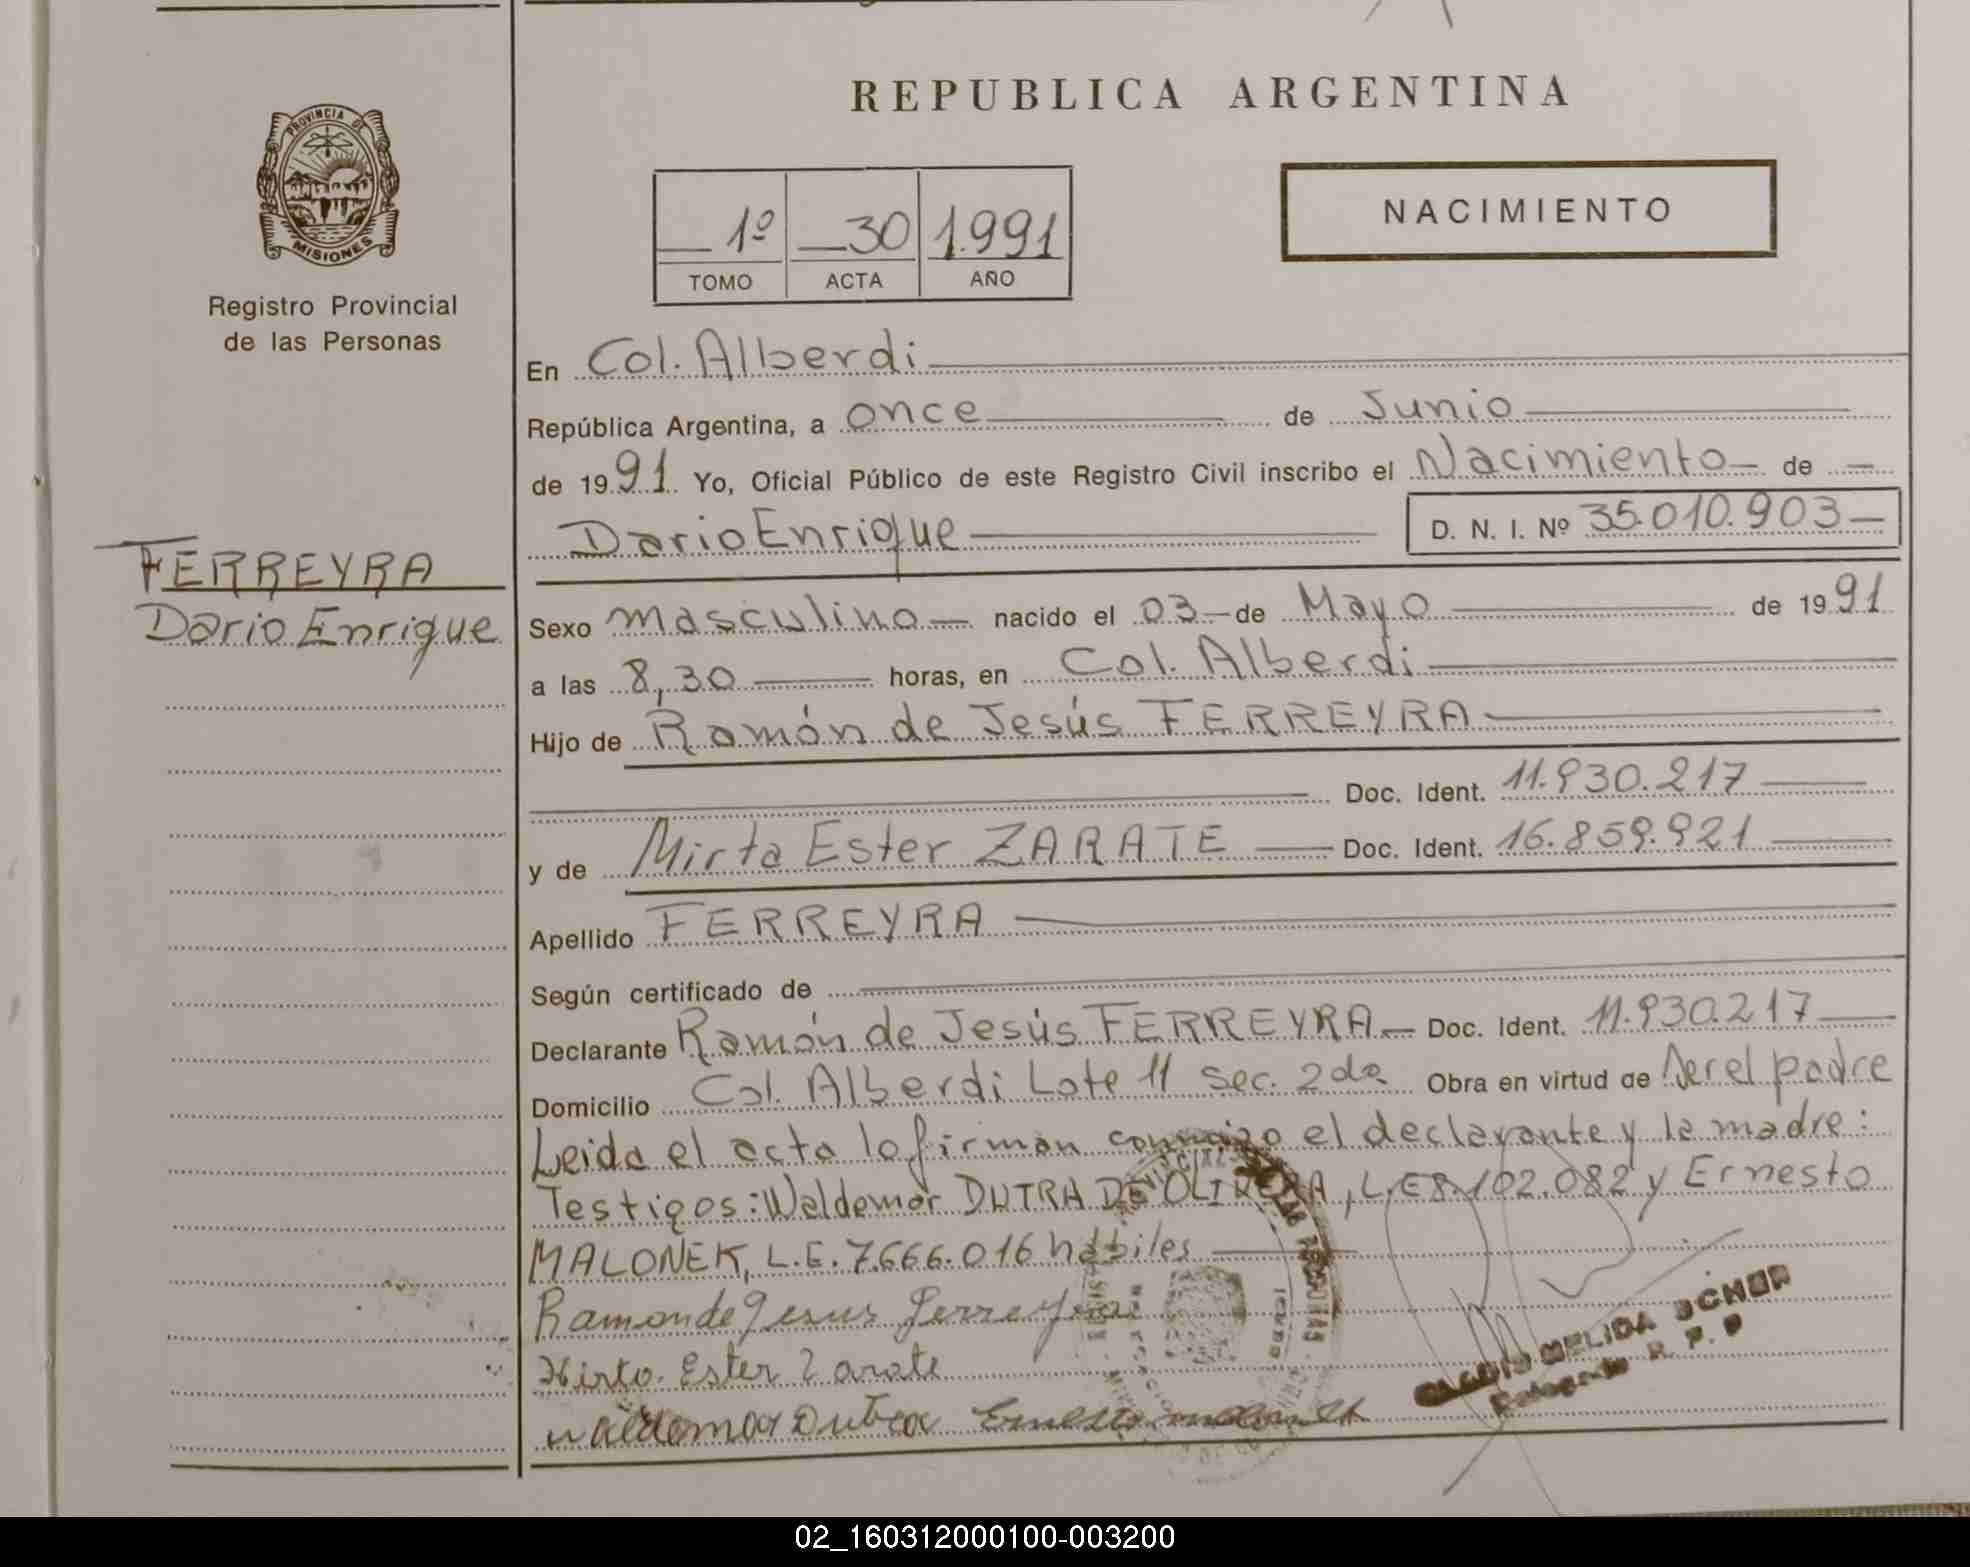 PROVINCIA DE
MISIONES
Registro Provincial
de las Personas
FERREYRA
Dario Enrique
REPUBLICA ARGENTINA
1º 30 1.991
TOMO ACTA AÑO
NACIMIENTO
En Col. Alberdi
República Argentina, a once de Junio
de 1991 Yo, Oficial Público de este Registro Civil inscribo el Nacimiento de
Dario Enrique D. N. I. Nº 35.010.903
Sexo masculino nacido el 03 de Mayo de 1991
a las 8,30 horas, en Col. Alberdi
Hijo de Ramón de Jesús FERREYRA
Doc. Ident. 11.930.217
y de Mirta Ester ZARATE Doc. Ident. 16.859.921
Apellido FERREYRA
Según certificado de
Declarante Ramón de Jesús FERREYRA Doc. Ident. 11.930.217
Domicilio Col. Alberdi Lote 11 sec. 2da Obra en virtud de Ser el padre
Leida el acta la firman conmigo el declarante y la madre:
Testigos: Waldemar DUTRA DE OLIVERA, L.E 8.102.082 y Ernesto
MALONEK, L.E. 7.666.016 hábiles
Ramon de Jesus Ferreyra
Mirta Ester Zarate
Waldemar Dutra Ernesto
MELIDA
Delegado R. P. P
02_160312000100-003200